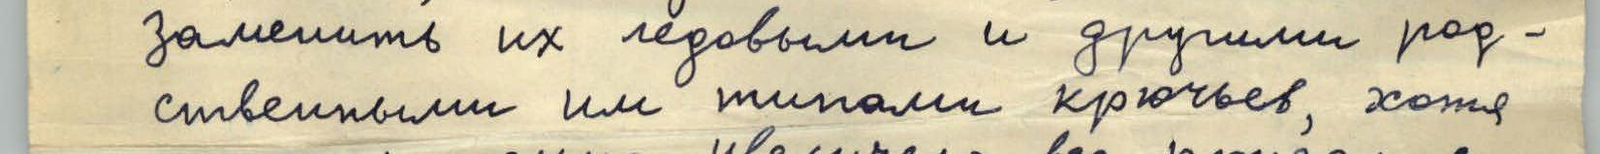 заменить их ледовыми и другими род-
ственными им типами крючьев, хотя